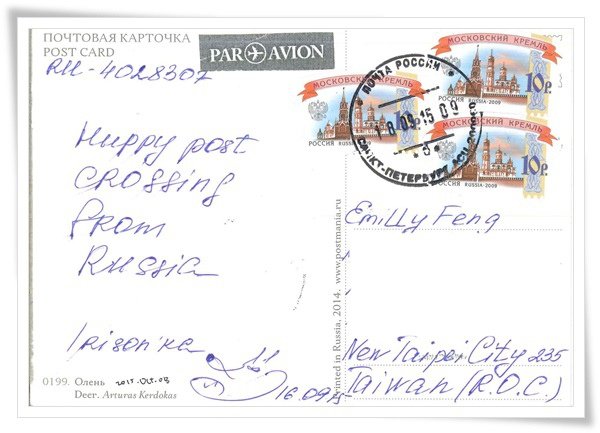 ПОЧТОВАЯ КАРТОЧКА
POST CARD
PAR AVION
RU-4028307
Huppy post
crossing
from
Russia
Irison'ka
16.09.15
0199. Олень 2015.Oct.08
Deer. Arturas Kerdokas
Printed in Russia, 2014. www.postmania.ru
МОСКОВСКИЙ КРЕМЛЬ
РОССИЯ RUSSIA
МОСКОВСКИЙ КРЕМЛЬ
10р.
РОССИЯ RUSSIA·2009
МОСКОВСКИЙ КРЕМЛЬ
10р.
РОССИЯ RUSSIA·2009
ПОЧТА РОССИИ
САНКТ-ПЕТЕРБУРГ
Emilly Feng
New Taipei City 235
Taiwan (R.O.C.)